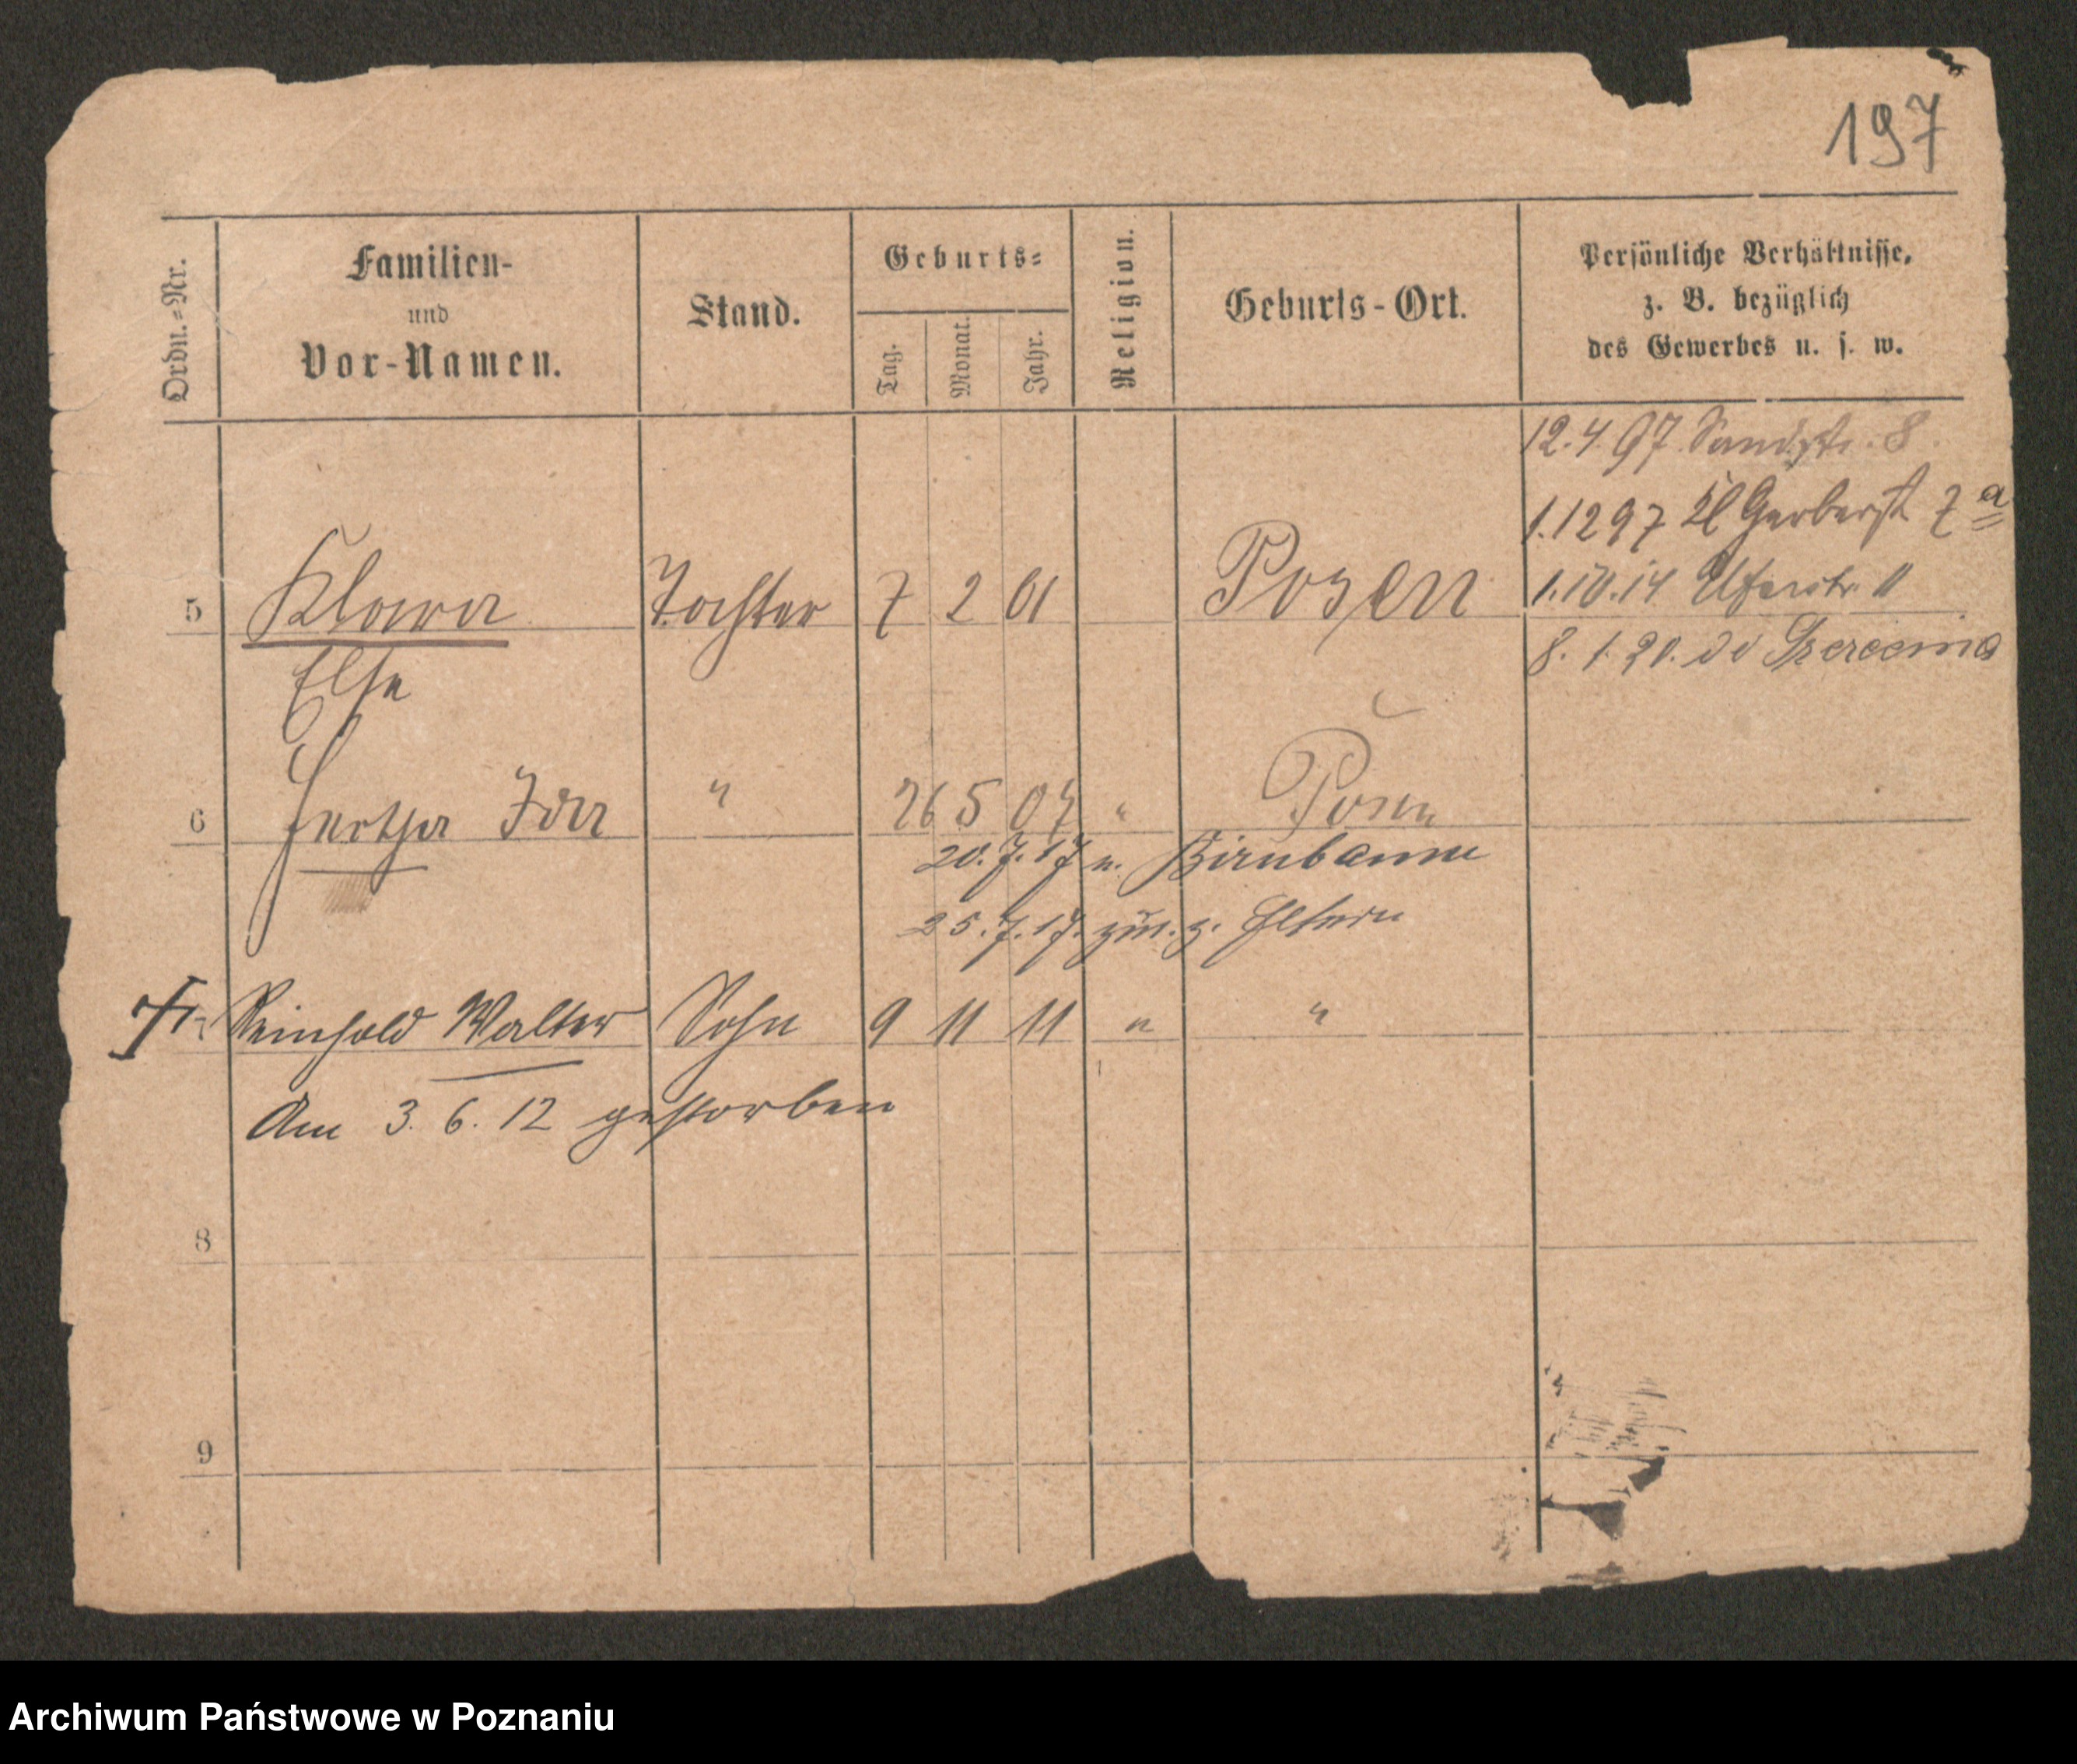 197
Ordn.=Nr.
Familien-
und
Vor-Namen.
Stand.
Geburts=
Tag.
Monat.
Jahr.
Religion.
Geburts-Ort.
Persönliche Verhältnisse,
z. B. bezüglich
des Gewerbes u. s. w.
12.4.97 Sandstr. 8.
1.12 97 Kl Gerberst 7 a
5 Klara Tochter 7 2 01 Posen 1.10.14 Uferstr. 11
Else 8. 1. 20. do
6 Hertha Ida " 26 5 07 " Posen
20. 7. 17 n. Birnbaum
25. 7. 17. zur. z. Eltern
7 Reinhold Walter Sohn 9 11 11 " "
Am 3. 6. 12 gestorben
8
9
Archiwum Państwowe w Poznaniu